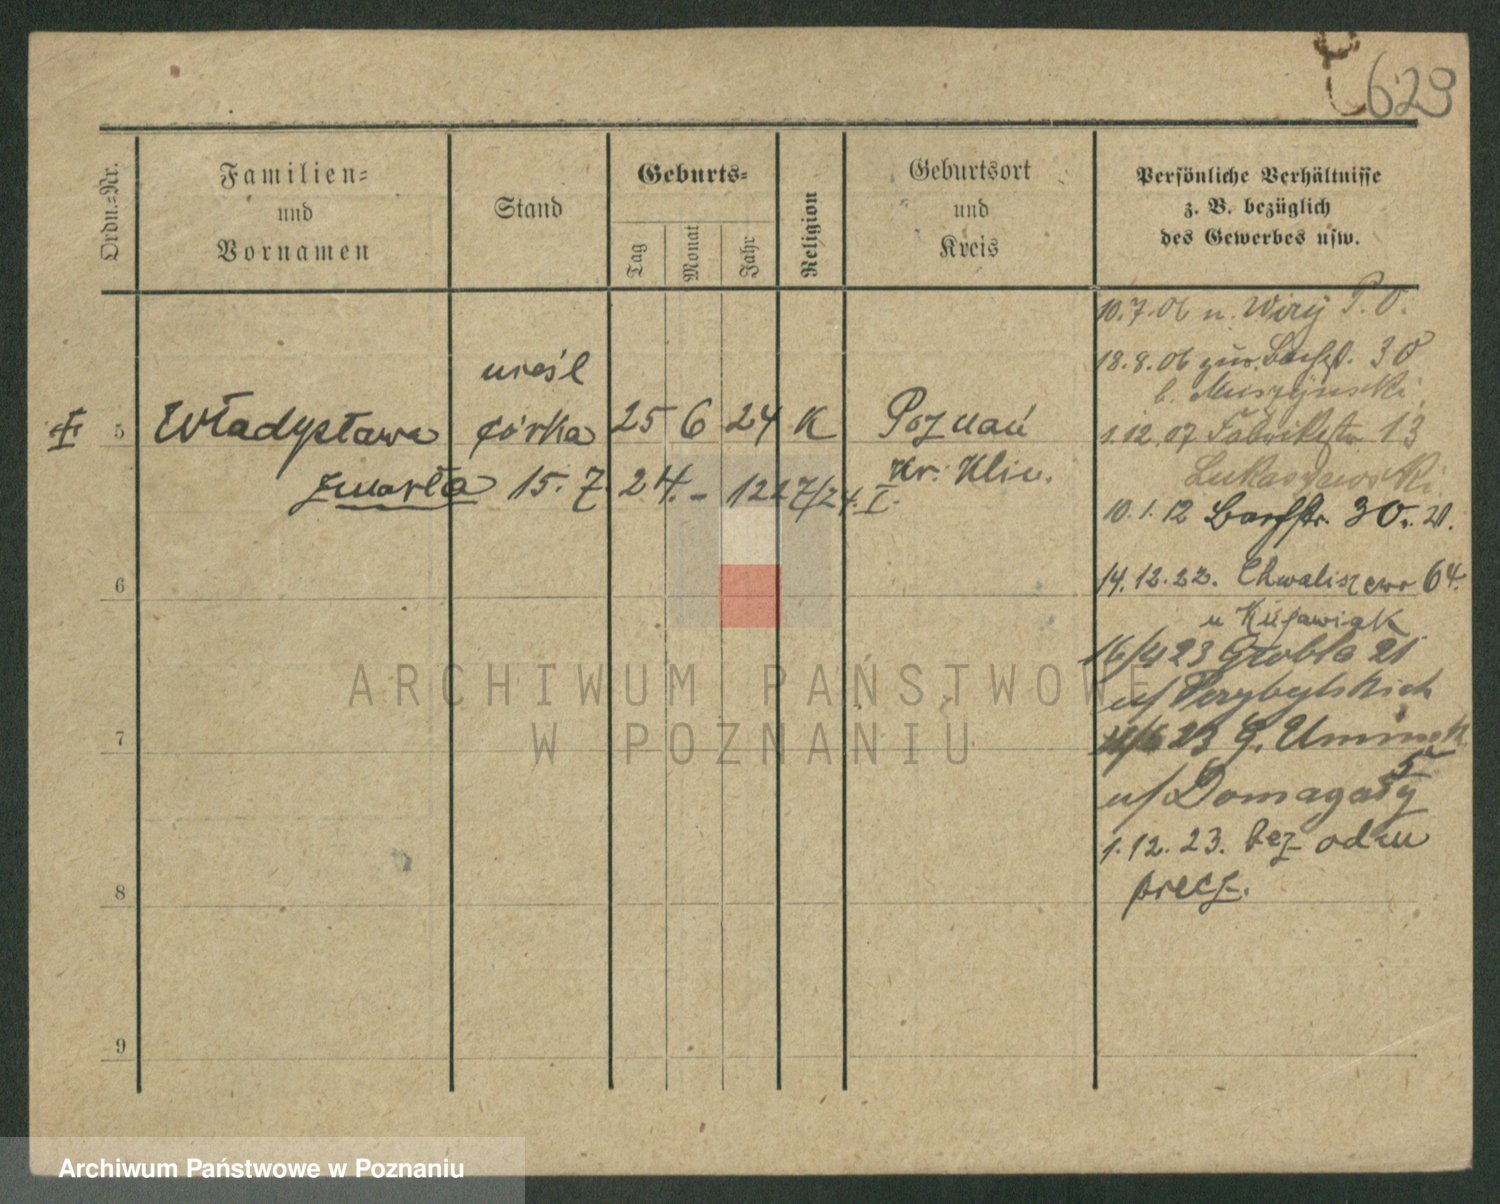 629
Ordn.-Nr.
Familien-
und
Vornamen
Stand
Geburts-
Tag
Monat
Jahr
Religion
Geburtsort
und
Kreis
Persönliche Verhältnisse
z. B. bezüglich
des Gewerbes usw.
nieśl
5 Władysława córka 25 6 24 K Poznań
zmarła 15. 7. 24. - 1227/24. I.
Kr. Klin.
6
7
8
9
10.7.06 n. Wiry P.O.
18.8.06 zur. 30
b. Muszyński
1.12.07 Fabrikstr 13
Lukaszewski
10.1.12 30.
14.12.22. Chwaliszewo 64.
u Kujawiak
16/4 23 Grobla 21
u/ Przybylskich
23 G. Umińsk
5
u/ Domagały
1.12.23. bez odm
precz.
ARCHIWUM PAŃSTWOWE
W POZNANIU
Archiwum Państwowe w Poznaniu